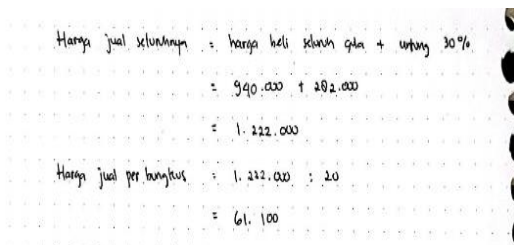 Harga jual seluruhnya = harga beli seluruh gula + untung 30%
= 940.000 + 282.000
= 1.222.000
Harga jual per bungkus = 1.222.000 : 20
= 61.100